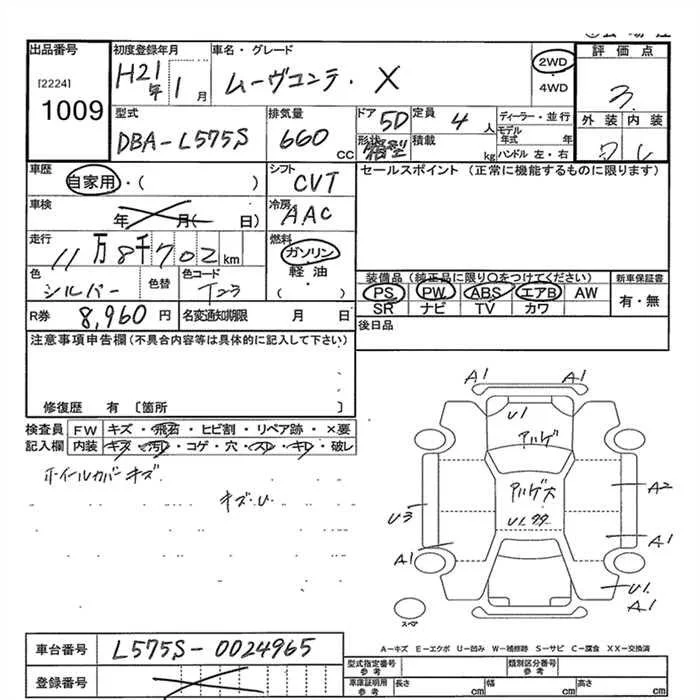 出品番号 初度登録年月 車名・グレード 2WD 評価点
[2224] H21年 1月 ムーヴコンテ・X 4WD 3
1009 型式 排気量 ドア 5D 定員 4人 ディーラー・並行 外装 内装
DBA-L575S 660cc 形状 箱型 積載 kg モデル年式 年 ハンドル 左・右
車歴 シフト セールスポイント (正常に機能するものに限ります)
自家用・( ) CVT
車検 年 月( 日) 冷房 AAC
走行 11万8千702km 燃料 ガソリン
色 シルバー 色替 色コード T23 軽油 ・( ) 装備品 (純正品に限り○をつけてください) 新車保証書
PS PW ABS エアB AW 有・無
R券 8,960円 名変通知期限 月 日 SR ナビ TV カワ
注意事項申告欄(不具合内容等は具体的に記入して下さい) 後日品
修復歴 有 〔箇所 〕
検査員 FW キズ・飛石・ヒビ割・リペア跡・×要
記入欄 内装 キズ・汚れ・コゲ・穴・スレ・キレ・破レ
ホイールカバーキズ
キズ・U
A1 A1
U1
アハゲ
アハゲ大
U1
A2
U3
A1
A1
U1
A1
スペア
A-キズ E-エクボ U-凹み W-補修跡 S-サビ C-腐食 XX-交換済
車台番号 L575S-0024965
登録番号
型式指定番号 参考 類別区分番号 参考
車庫証明用 参考 長さ cm 幅 cm 高さ cm